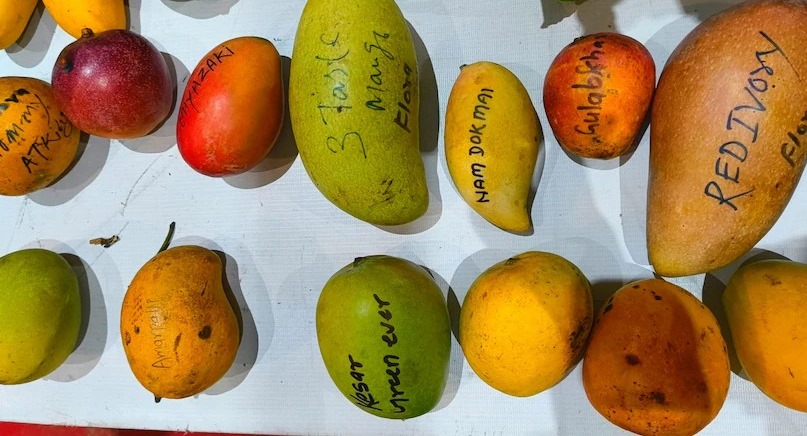 Tommy
ATKins
MIYAZAKI
3 Taste
Mango
Flora
NAM DOK MAI
Gulabkhas
RED IVosy
Kesar
Green ever